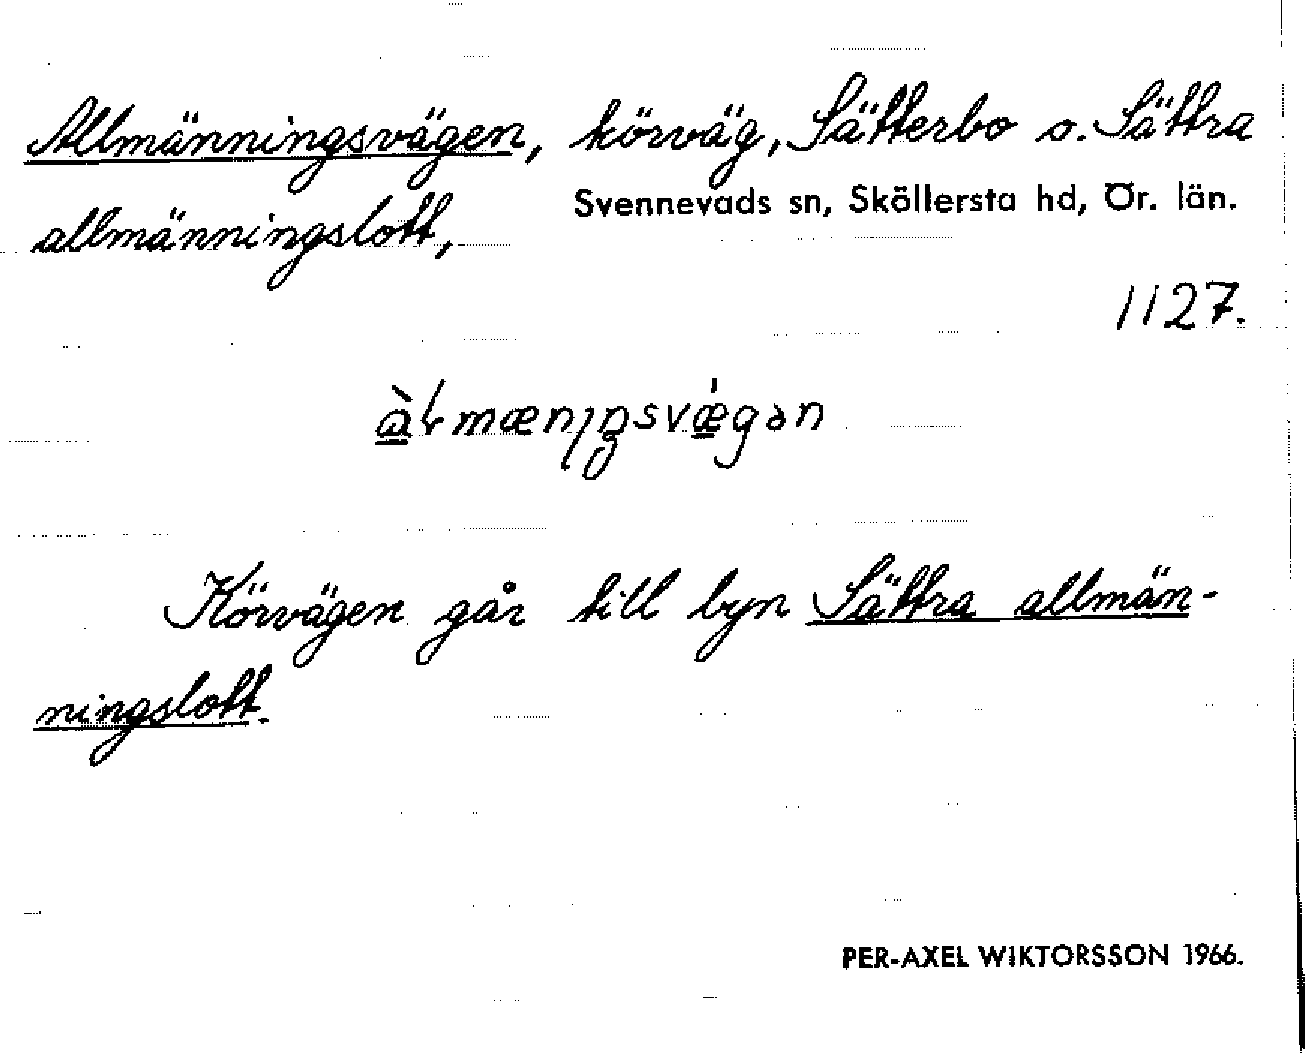 Allmänningsvägen, körväg, Sätterbo o. Sättra
Svennevads sn, Sköllersta hd, Ör. län.
allmänningslott,
1127.
Körvägen går till byn Sättra allmän-
ningslott.
PER-AXEL WIKTORSSON 1966.